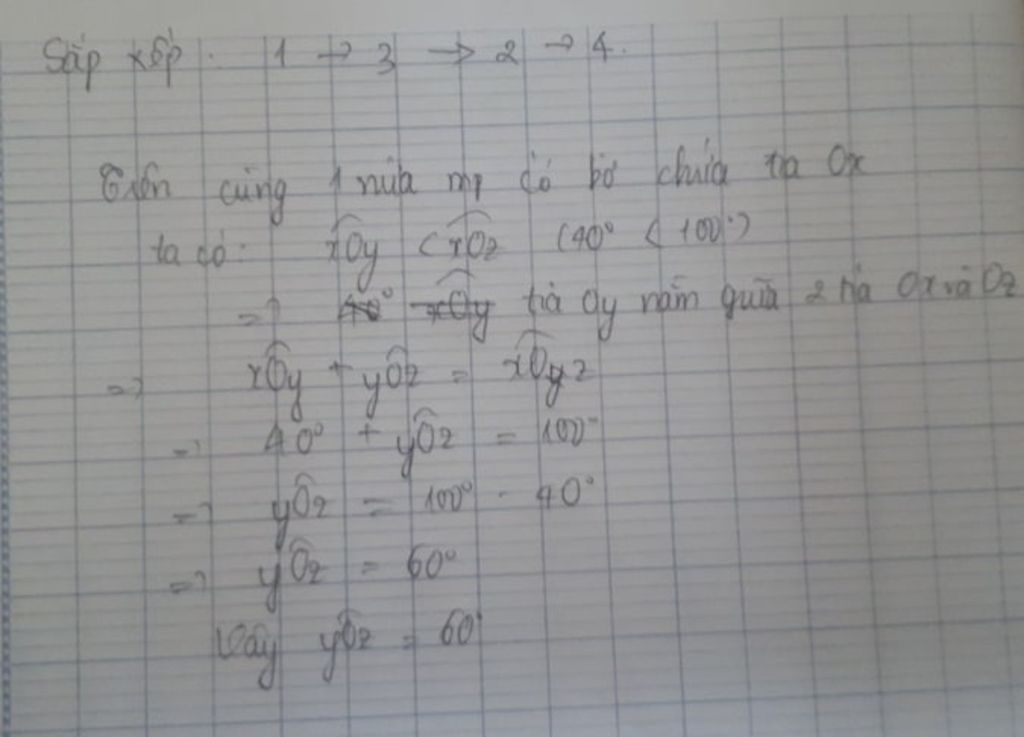 Sắp xếp : 1 → 3 → 2 → 4.
Trên cùng 1 nửa mp có bờ chứa tia Ox
ta có : xOy < xOz (40° < 100°)
=> 40° xOy tia Oy nằm giữa 2 tia Ox và Oz
=> xOy + yOz = xOyz
=> 40° + yOz = 100°
=> yOz = 100° - 40°
=> yOz = 60°
Vậy yOz = 60°